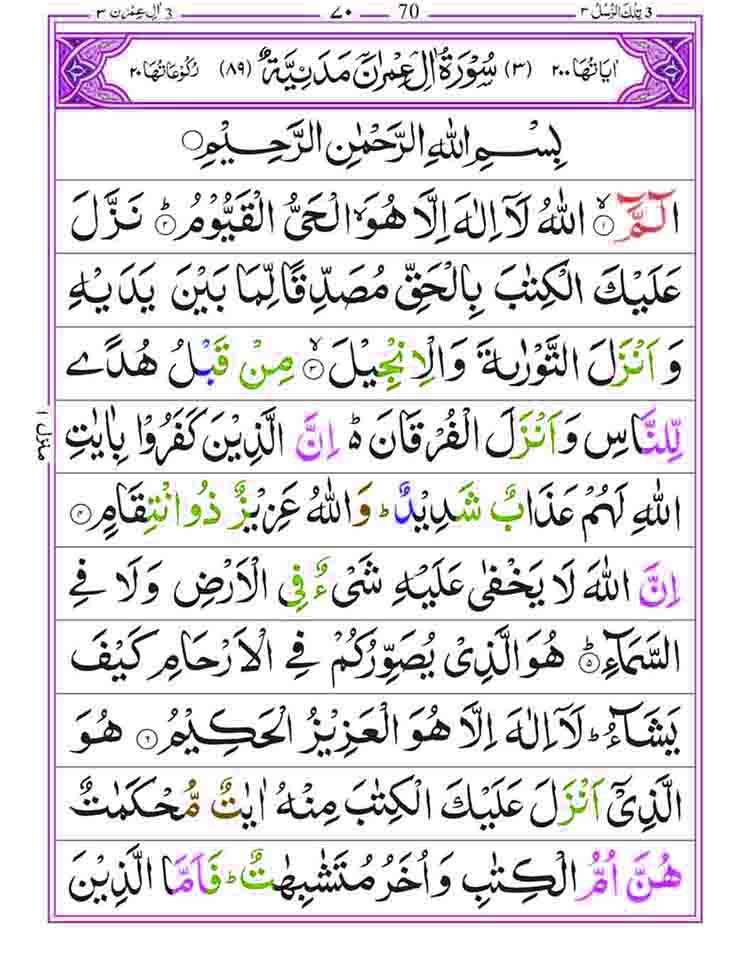 3 تِلْكَ الرُّسُلُ ٣ 70 ٧٠ 3 اٰلِ عِمْرٰن ٣
اٰيَاتُهَا ٢٠٠ (٣) سُوْرَةُ اٰلِ عِمْرٰنَ مَدَنِيَّةٌ (٨٩) رُكُوْعَاتُهَا ٢٠
بِسْمِ اللّٰهِ الرَّحْمٰنِ الرَّحِيْمِ
الٓمَّٓ ۙ﴿١﴾ اللّٰهُ لَاۤ اِلٰهَ اِلَّا هُوَ ۙ الْحَىُّ الْقَيُّوْمُ ؕ﴿٢﴾ نَزَّلَ
عَلَيْكَ الْكِتٰبَ بِالْحَقِّ مُصَدِّقًا لِّمَا بَيْنَ يَدَيْهِ
وَاَنْزَلَ التَّوْرٰىةَ وَالْاِنْجِيْلَ ۙ﴿٣﴾ مِنْ قَبْلُ هُدًى
لِّلنَّاسِ وَاَنْزَلَ الْفُرْقَانَ ؕ اِنَّ الَّذِيْنَ كَفَرُوْا بِاٰيٰتِ
اللّٰهِ لَهُمْ عَذَابٌ شَدِيْدٌ ؕ وَاللّٰهُ عَزِيْزٌ ذُو انْتِقَامٍ ﴿٤﴾
اِنَّ اللّٰهَ لَا يَخْفٰى عَلَيْهِ شَىْءٌ فِى الْاَرْضِ وَلَا فِى
السَّمَآءِ ؕ﴿٥﴾ هُوَ الَّذِىْ يُصَوِّرُكُمْ فِى الْاَرْحَامِ كَيْفَ
يَشَآءُ ؕ لَاۤ اِلٰهَ اِلَّا هُوَ الْعَزِيْزُ الْحَكِيْمُ ﴿٦﴾ هُوَ
الَّذِىْۤ اَنْزَلَ عَلَيْكَ الْكِتٰبَ مِنْهُ اٰيٰتٌ مُّحْكَمٰتٌ
هُنَّ اُمُّ الْكِتٰبِ وَاُخَرُ مُتَشٰبِهٰتٌ ؕ فَاَمَّا الَّذِيْنَ
منزل ١